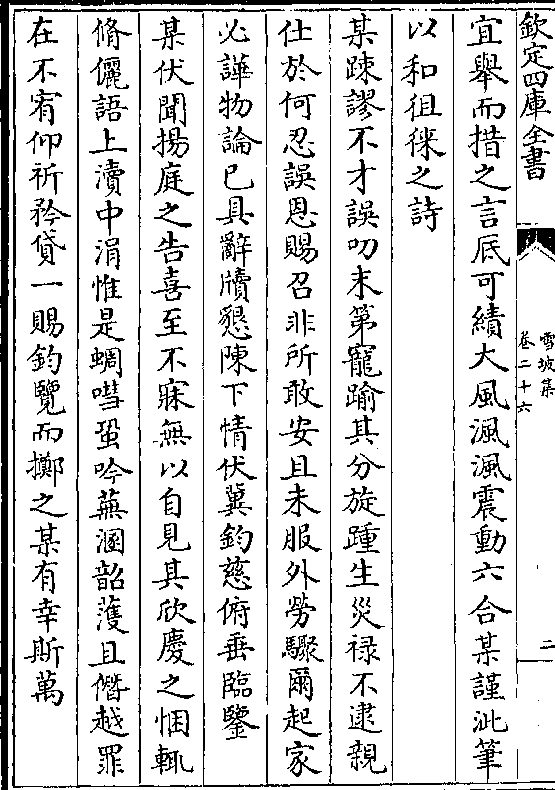 欽定四庫全書
雪坡集
卷二十六
二
宜舉而措之言底可績大風渢渢震動六合某謹泚筆
以和徂徠之詩
某踈謬不才誤叨末第寵踰其分旋踵生災禄不逮親
仕於何忍誤恩賜召非所敢安且未服外勞驟爾起家
必譁物論已具辭牘懇陳下情伏冀鈞慈俯垂臨鑒
某伏聞揚庭之告喜至不寐無以自見其欣慶之悃輒
脩儷語上瀆中涓惟是蜩嘒蛩吟蕪溷韶頀且僭越罪
在不宥仰祈矜貸一賜鈞覽而擲之某有幸斯萬